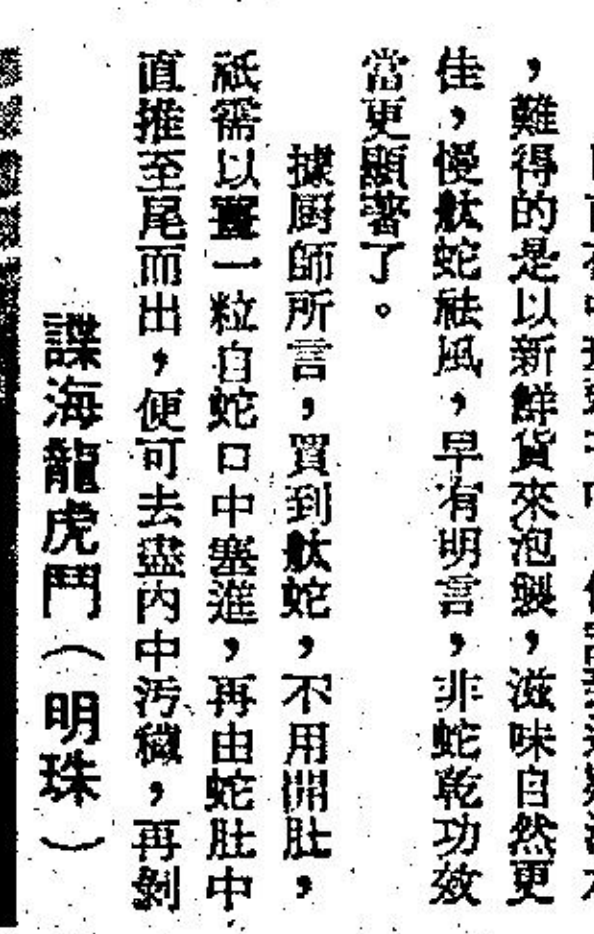 ，難得的是以新鮮貨來泡製，滋味自然更
佳，慢魷蛇祛風，早有明言，非蛇乾功效
當更顯著了。
據厨師所言，買到魷蛇，不用開肚，
祇需以薑一粒自蛇口中塞進，再由蛇肚中
直推至尾而出，便可去盡內中污穢，再剝
諜海龍虎鬥（明珠）